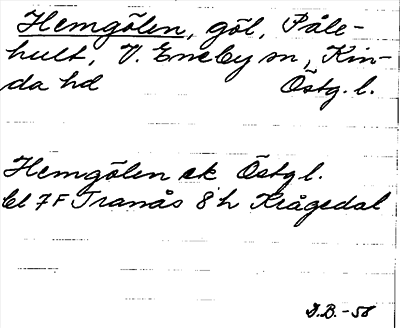 Hemgölen, göl, Påle-
hult, V. Eneby sn, Kin-
da hd Östg. l.
Hemgölen ek Östg l.
bl 7F Tranås 8 h Krågedal
D.B. -58